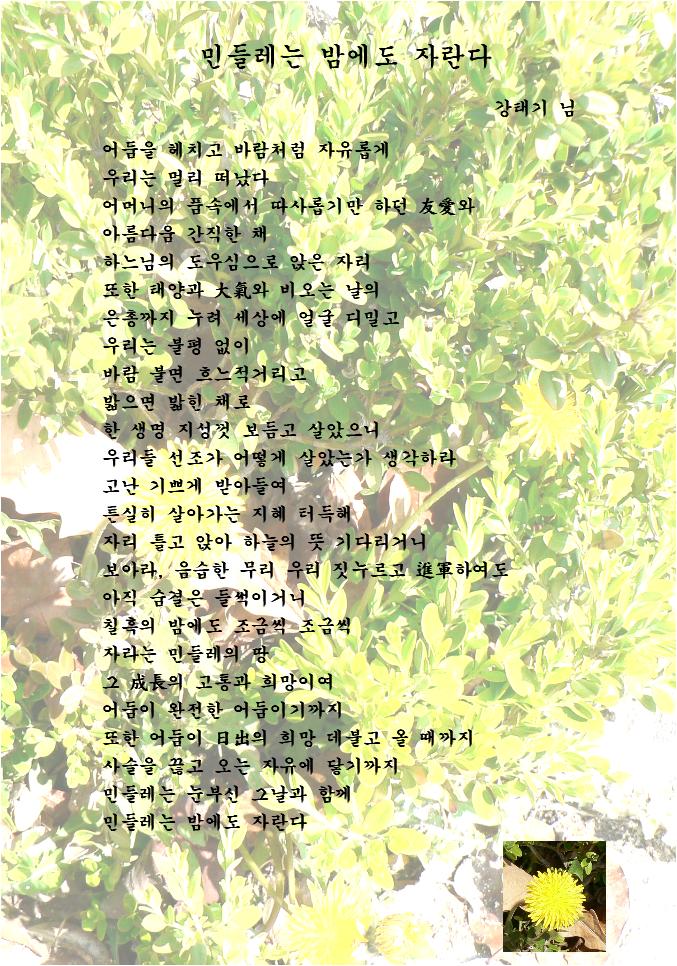 민들레는 밤에도 자란다
강태기 님
어둠을 헤치고 바람처럼 자유롭게
우리는 멀리 떠났다
어머니의 품속에서 따사롭기만 하던 友愛와
아름다움 간직한 채
하느님의 도우심으로 앉은 자리
또한 태양과 大氣와 비오는 날의
은총까지 누려 세상에 얼굴 디밀고
우리는 불평 없이
바람 불면 흐느적거리고
밟으면 밟힌 채로
한 생명 지성껏 보듬고 살았으니
우리들 선조가 어떻게 살았는가 생각하라
고난 기쁘게 받아들여
튼실히 살아가는 지혜 터득해
자리 틀고 앉아 하늘의 뜻 기다리거니
보아라, 음습한 무리 우리 짓누르고 進軍하여도
아직 숨결은 들썩이거니
칠흑의 밤에도 조금씩 조금씩
자라는 민들레의 땅
그 成長의 고통과 희망이여
어둠이 완전한 어둠이기까지
또한 어둠이 日出의 희망 데불고 올 때까지
사슬을 끊고 오는 자유에 닿기까지
민들레는 눈부신 그날과 함께
민들레는 밤에도 자란다